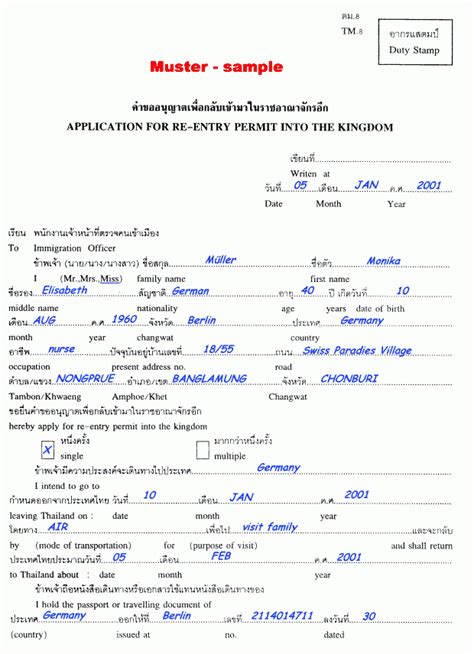 ตม.8
TM.8
อากรแสตมป์
Duty Stamp
Muster - sample
คำขออนุญาตเพื่อกลับเข้ามาในราชอาณาจักรอีก
APPLICATION FOR RE-ENTRY PERMIT INTO THE KINGDOM
เขียนที่
Writen at
วันที่ 05 เดือน JAN ค.ศ. 2001
Date Month Year
เรียน พนักงานเจ้าหน้าที่ตรวจคนเข้าเมือง
To Immigration Officer
ข้าพเจ้า (นาย/นาง/นางสาว) ชื่อสกุล Müller ชื่อตัว Monika
I (Mr.,Mrs.,Miss) family name first name
ชื่อรอง Elisabeth สัญชาติ German อายุ 40 ปี เกิดวันที่ 10
middle name nationality age years date of birth
เดือน AUG ค.ศ. 1960 จังหวัด Berlin ประเทศ Germany
month year changwat country
อาชีพ nurse ปัจจุบันอยู่บ้านเลขที่ 18/55 ถนน Swiss Paradies Village
occupation present address no. road
ตำบล/แขวง NONGPRUE อำเภอ/เขต BANGLAMUNG จังหวัด CHONBURI
Tambon/Khwaeng Amphoe/Khet Changwat
ขอยื่นคำขออนุญาตเพื่อกลับเข้ามาในราชอาณาจักรอีก
hereby apply for re-entry permit into the kingdom
X หนึ่งครั้ง มากกว่าหนึ่งครั้ง
single multiple
ข้าพเจ้ามีความประสงค์จะเดินทางไปประเทศ Germany
I intend to go to
กำหนดออกจากประเทศไทย วันที่ 10 เดือน JAN ค.ศ. 2001
leaving Thailand on : date month year
โดยทาง AIR เพื่อไป visit family และจะกลับ
by (mode of transportation) for (purpose of visit) and shall return
ประเทศไทยประมาณวันที่ 05 เดือน FEB ค.ศ. 2001
to Thailand about : date month year
ข้าพเจ้าถือหนังสือเดินทางหรือเอกสารใช้แทนหนังสือเดินทางของ
I hold the passport or travelling document of
ประเทศ Germany ออให้ที่ Berlin เลขที่ 2114014711 ลงวันที่ 30
(country) issued at no. dated